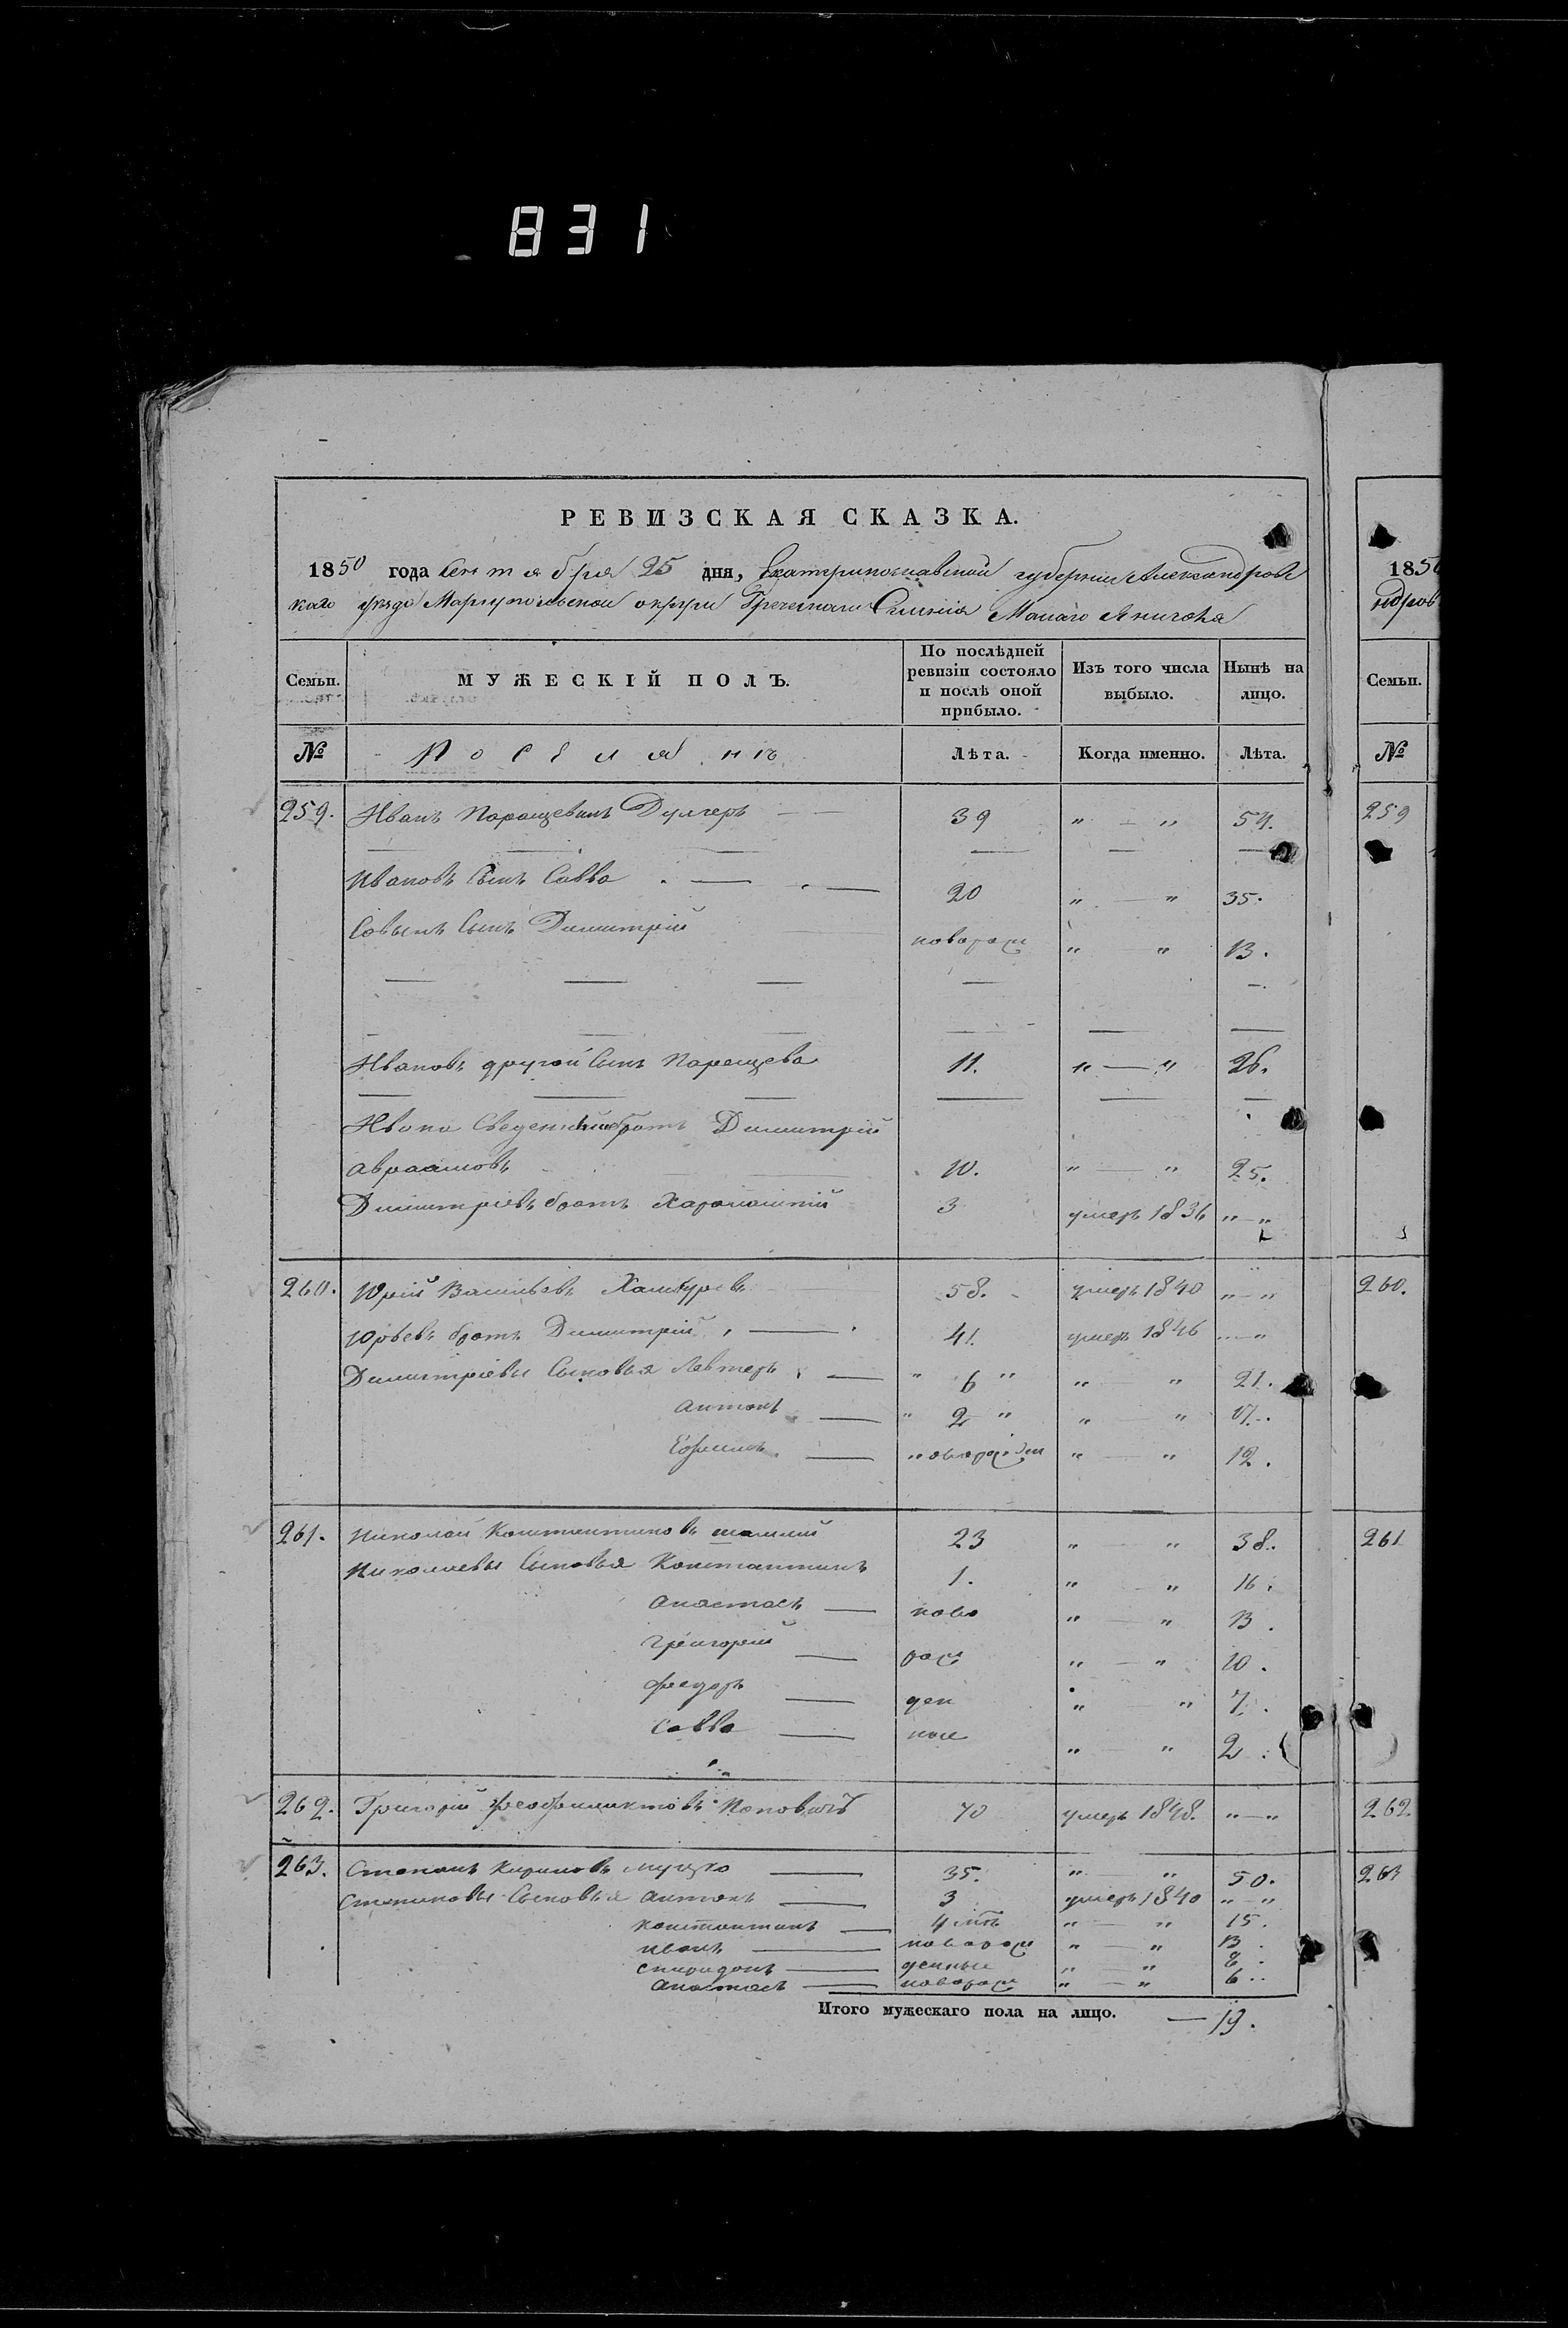 831
РЕВИЗСКАЯ СКАЗКА.
1850 года Сентября 25 дня, Екатеринославской губернии Александровс
каго уѣзда Мариупольской округи Греческаго Селенія Малаго Янисоля
Семьи. МУЖЕСКІЙ ПОЛЪ. По послѣдней ревизіи состояло и послѣ оной прибыло. Изъ того числа выбыло. Нынѣ на лицо.
№ Поселянъ Лѣта. Когда именно. Лѣта.
259. Иванъ Паращевинъ Дулгеръ — 39 „ — „ 54.
Ивановъ Сынъ Савва — 20 „ — „ 35.
Савынъ Сынъ Димитрій новорож „ — „ 13.
Ивановъ другой Сынъ Паращева 11. „ — „ 26.
Ивана Сведенный братъ Димитрій
авраамовъ 10. „ — „ 25.
Димитріевъ братъ Харалампій 3 умеръ 1836 „ — „
260. Юрій Васильевъ 58. умеръ 1840 „ — „
Юрьевъ братъ Димитрій — 41. умеръ 1846 „ — „
Димитріевы Сыновья Левтеръ — „ 6 „ „ — „ 21.
антонъ — „ 2 „ „ — „ 17.
Ефимъ — новорожден „ — „ 12.
261. Николай Константиновъ 23 „ — „ 38.
Николаевы Сыновья Константинъ 1. „ — „ 16.
анастасъ — ново „ — „ 13.
григорій — рож „ — „ 10.
федоръ — ден „ — „ 7.
савва — ные „ — „ 2.
262. Григорій феофилактовъ Поповичъ 70 умеръ 1848. „ — „
263. Степанъ Кириловъ — 35. „ — „ 50.
Степановы Сыновья антонъ — 3 умеръ 1840 „ — „
константинъ — „ — „ 15.
иванъ — новорож „ — „ 13.
спиридонъ — денные „ — „ 8.
анастасъ — новорож „ — „ 6.
Итого мужескаго пола на лицо. — 19.
1850
ндров
Семьи.
№
259
260.
261
262.
263